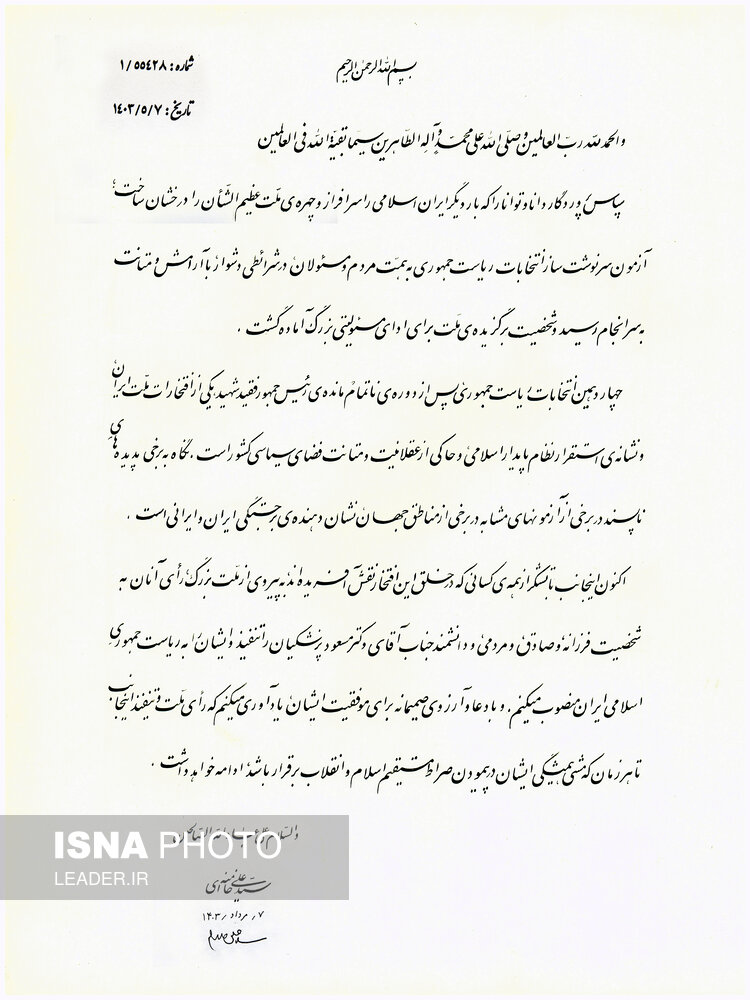 بسم الله الرحمن الرحیم
شماره: ۱/۵۵۴۲۸
تاریخ: ۱۴۰۳/۵/۷
والحمدلله رب العالمین و صلّی الله علی محمّد و آله الطّاهرین سیّما بقیّة الله فی العالمین
سپاس پروردگار دانا و توانا را که بار دیگر ایران اسلامی را سرافراز و چهره‌ی ملّت عظیم‌الشّأن را درخشان ساخت؛
آزمون سرنوشت‌ساز انتخابات ریاست جمهوری به همّت مردم و مسئولان در شرائطی دشوار با آرامش و متانت
به سرانجام رسید و شخصیت برگزیده‌ی ملّت برای ادای مسئولیتی بزرگ آماده گشت.
چهاردهمین انتخابات ریاست جمهوری پس از دوره‌ی ناتمام مانده‌ی رئیس جمهور فقید شهید یکی از افتخارات ملّت ایران
و نشانه‌ی استقرار نظام پایدار اسلامی و حاکی از عقلانیت و متانت فضای سیاسی کشور است. نگاه به برخی پدیده‌های
ناپسند در برخی از آزمونهای مشابه در برخی از مناطق جهان نشان دهنده‌ی برجستگی ایران و ایرانی است.
اکنون اینجانب با تشکّر از همه‌ی کسانی که در خلق این افتخار نقش آفریده‌اند به پیروی از ملّت بزرگ رأی آنان به
شخصیت فرزانه و صادق و مردمی و دانشمند جناب آقای دکتر مسعود پزشکیان را تنفیذ و ایشان را به ریاست جمهوری
اسلامی ایران منصوب میکنم. و با دعا و آرزوی صمیمانه برای موفقیت ایشان یادآوری میکنم که رأی ملّت و تنفیذ اینجانب
تا هر زمان که مشی همیشگی ایشان در پیمودن صراط مستقیم اسلام و انقلاب برقرار باشد ادامه خواهد داشت.
والسّلام علی عبادالله الصّالحین
ISNA PHOTO
LEADER.IR
سیّدعلی خامنه‌ای
۷/مرداد/۱۴۰۳